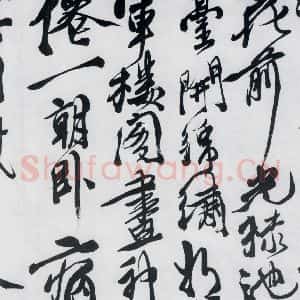 花前光禄池
臺開錦繡将
軍樓阁畫神
僊一朝卧病
Shufawang.cn